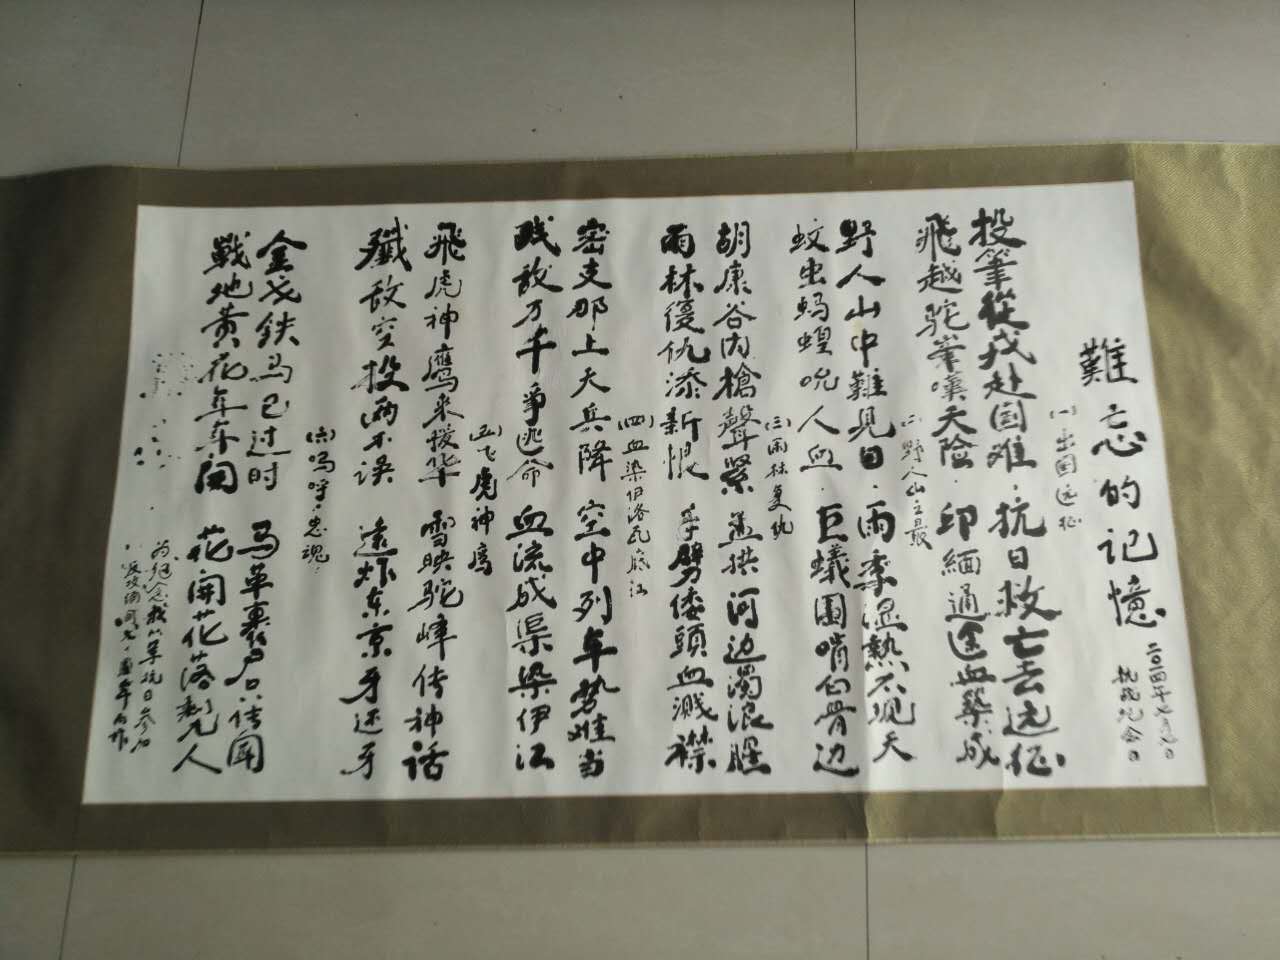 難忘的记憶
二〇一四年七月七日
抗战纪念日
(一)出国远征
投筆從戎赴国难．抗日救亡去远征
飛越驼峯嘆天险．印緬通途血築成
(二)野人山之最
野人山中難見日．雨季湿熱不现天
蚊虫蚂蝗吮人血．巨蟻围啃白骨边
(三)雨林复仇
胡康谷内槍聲緊 河边濁浪腥
雨林復仇添新恨 手劈倭頭血溅襟
(四)血染伊洛瓦底江
密支那上天兵降 空中列车势难当
贱敌万千争逃命 血流成渠染伊江
(五)飞虎神鹰
飛虎神鹰来援华 雪映驼峰传神话
殲敌空投两不误 远炸东京牙还牙
(六)呜呼．忠魂
金戈鉄马已过时 马革裹尸只传闻
戰地黄花年年開 花開花落剩几人
为纪念我 抗日参加